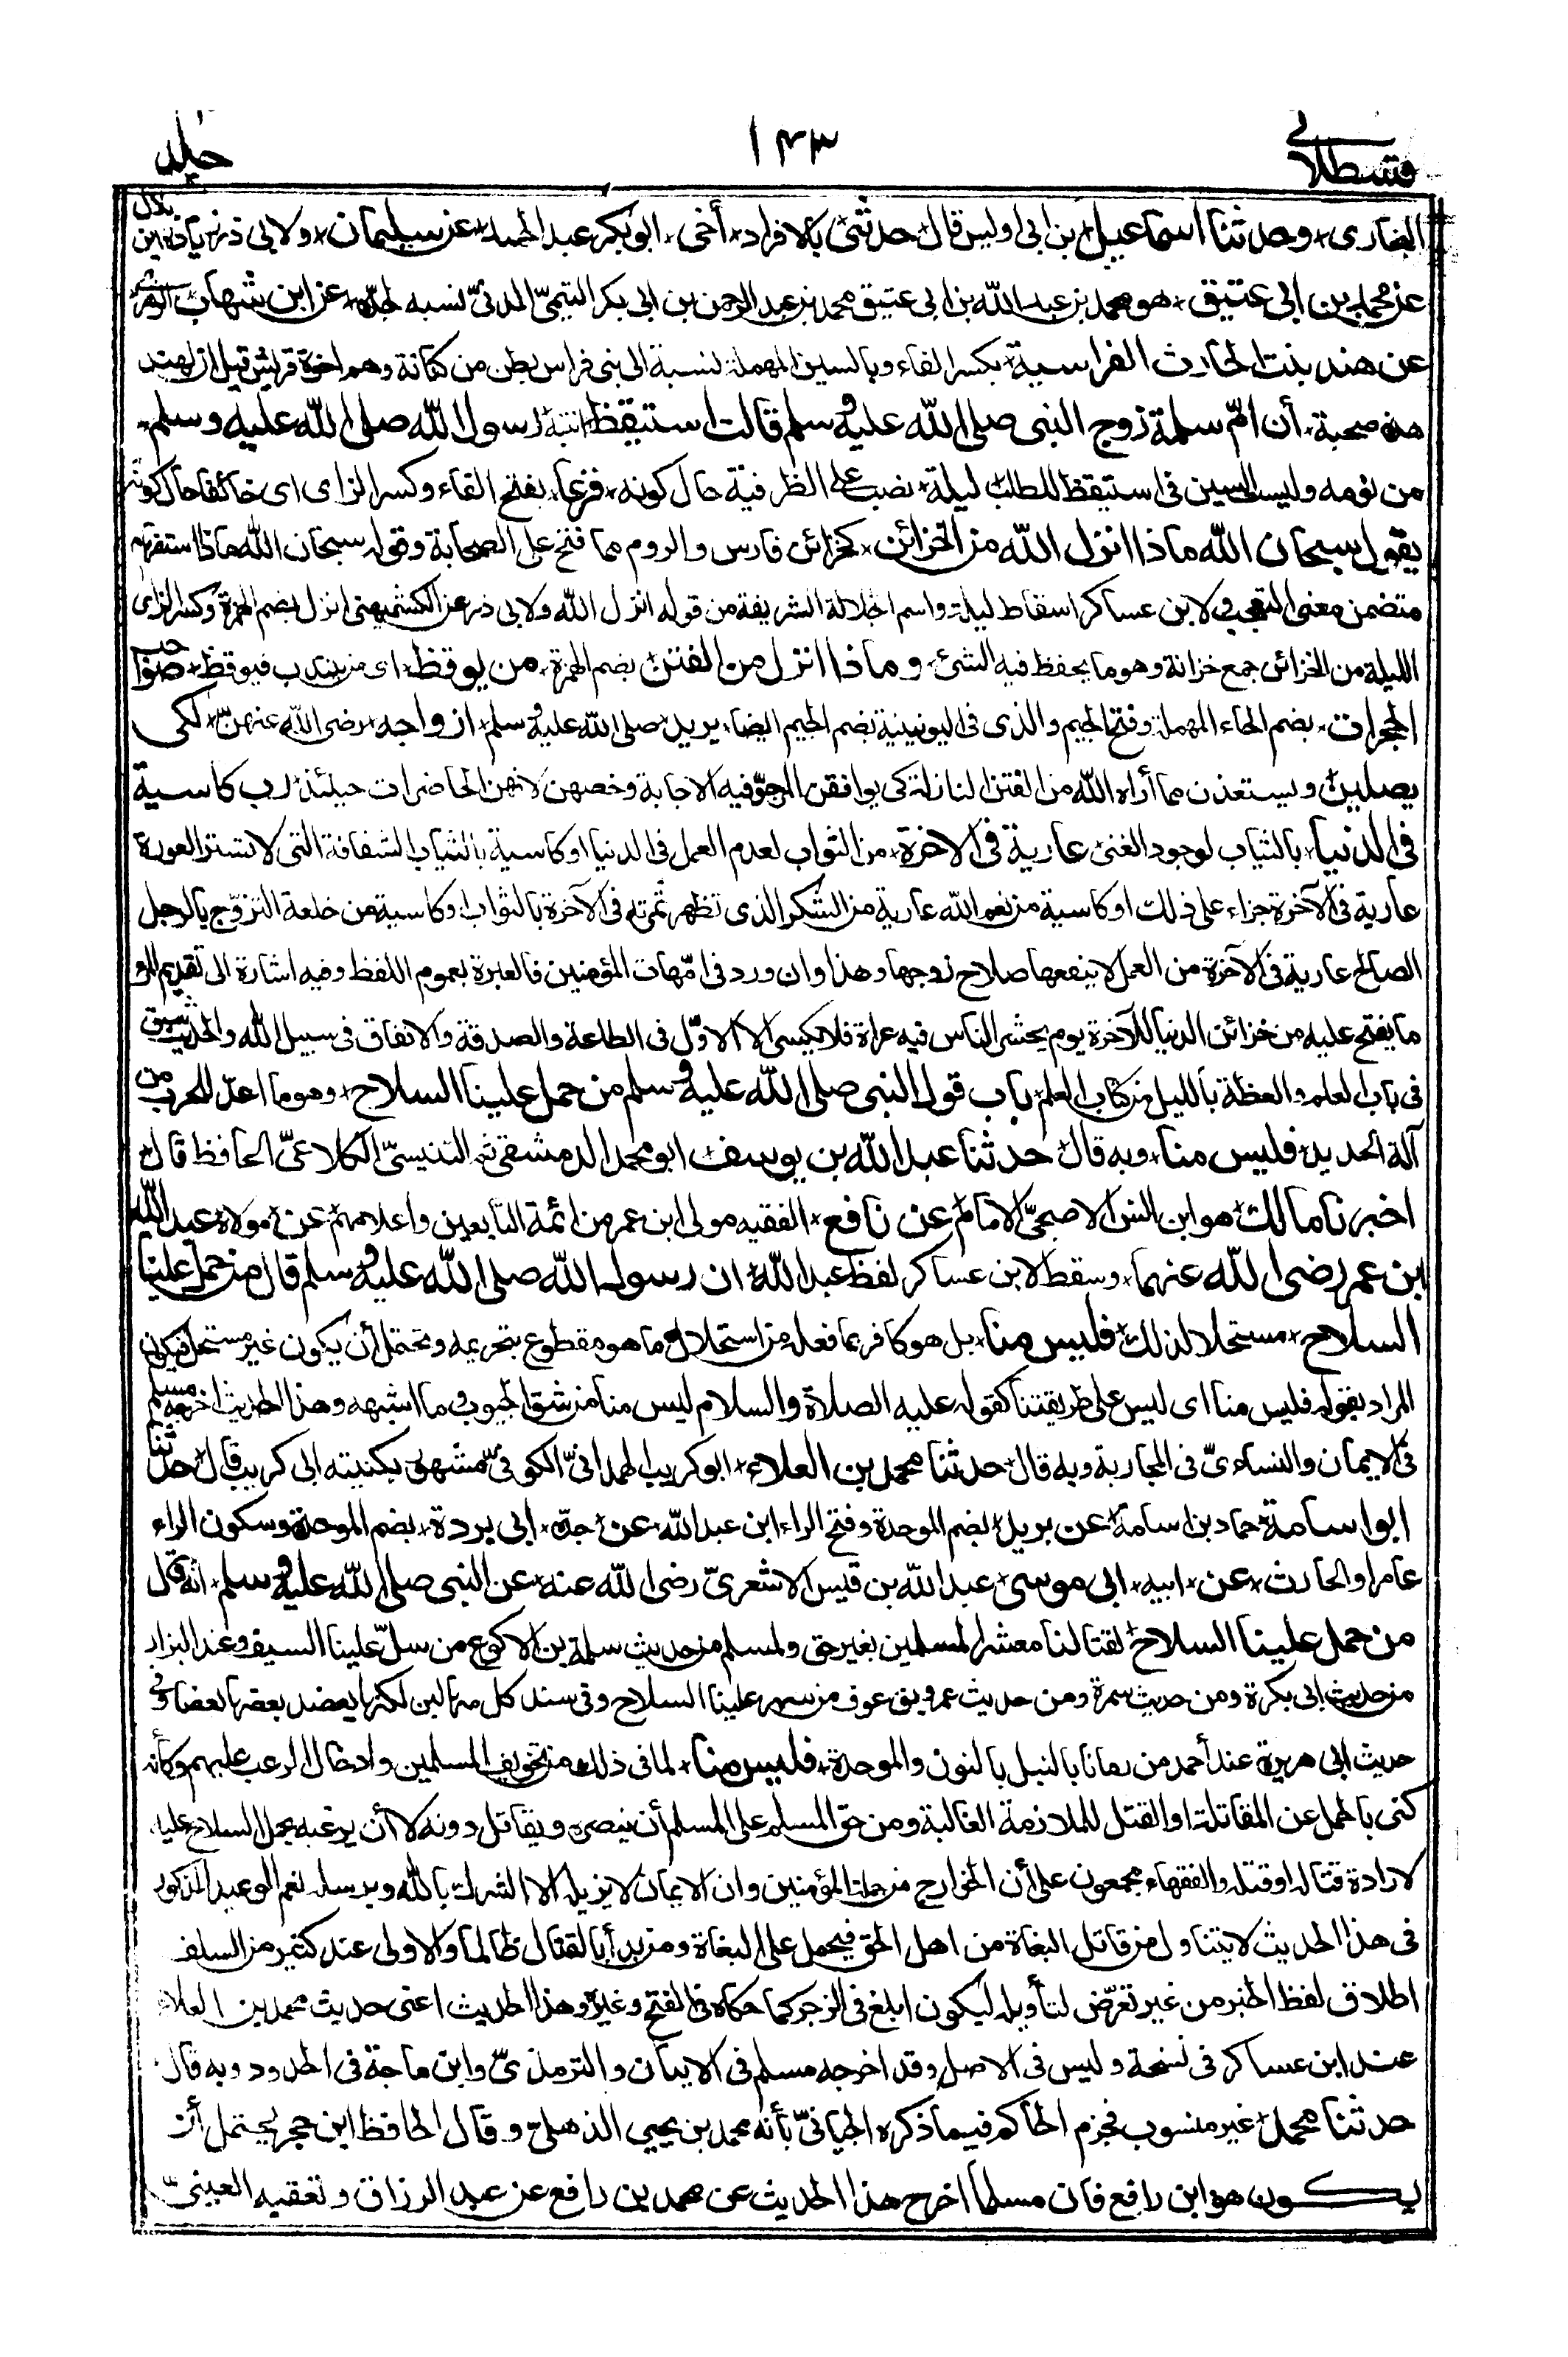 قسطلانی ١٤٣ جلد
البخاری * وحدثنا اسماعیل * بن ابی اویس قال * حدثنی * بالافراد * أخی * ابو بکر عبد الحمید * عن سلیمان * ولابی ذر زیادة ابن بلال
عن محمد بن ابی عتیق * هو محمد بن عبد الله بن ابی عتیق محمد بن عبد الرحمن بن ابی بکر التیمیّ المدنیّ نسبه لجدّه * عن ابن شهاب *
عن هند بنت الحارث الفراسیة * بکسر الفاء وبالسین المهملة نسبة الی بنی فراس بطن من کنانة وهم اخوة قریش قیل ان لهند
هذه صحبة * أن امّ سلمة زوج النبی صلی الله علیه وسلم قالت استیقظ * انتبه * رسول الله صلی الله علیه وسلم *
من نومه ولیس السین فی استیقظ للطلب * لیلة * نصب علی الظرفیة حال کونه * فزعا * بفتح الفاء وکسر الزای ای خائفا حال کونه
یقول سبحان الله ماذا انزل الله من الخزائن * کخزائن فارس والروم مما فتح علی الصحابة وقوله سبحان الله ماذا استفهام
متضمن معنی التعجب ولابن عساکر اسقاط لیلة واسم الجلالة الشریفة من قوله انزل الله ولابی ذر عن الکشمیهنی انزل بضم الهمزة وکسر الزای
اللیلة من الخزائن جمع خزانة وهو ما یحفظ فیه الشئ * وماذا انزل من الفتن * بضم الهمزة * من یوقظ * ای من ینتدب فیوقظ * صواحب
الحجرات * بضم الحاء المهملة وفتح الجیم والذی فی الیونینیة بضم الجیم ایضا * یرید * صلی الله علیه وسلم * ازواجه * رضی الله عنهنّ * لکی
یصلین * ویستعذن مما أراه الله من الفتن النازلة کی یوافقن المرجوّ فیه الاجابة وخصهن لانهن الحاضرات حینئذ * رب کاسیة
فی الدنیا * بالثیاب لوجود الغنی * عاریة فی الاخرة * من الثواب لعدم العمل فی الدنیا او کاسیة بالثیاب الشفافة التی لا تستر العورة
عاریة فی الآخرة جزاء علی ذلک او کاسیة من نعم الله عاریة من الشکر الذی تظهر ثمرته فی الآخرة بالثواب او کاسیة من خلعة التزوّج بالرجل
الصالح عاریة فی الآخرة من العمل لا ینفعها صلاح زوجها وهذا وان ورد فی امّهات المؤمنین فالعبرة بعموم اللفظ وفیه اشارة الی تقدیم المرء
ما یفتح علیه من خزائن الدنیا للآخرة یوم یحشر الناس فیه عراة فلا یکسی الا الاوّل فی الطاعة والصدقة والانفاق فی سبیل الله والحدیث سبق
فی باب العلم والعظة باللیل من کتاب العلم * باب قول النبی صلی الله علیه وسلم من حمل علینا السلاح * وهو ما اعدّ للحرب من
آلة الحدید * فلیس منا * وبه قال * حدثنا عبد الله بن یوسف * ابو محمد الدمشقی ثم التنیسیّ الکلاعیّ الحافظ قال *
اخبرنا مالک * هو ابن انس الاصبحیّ الامام * عن نافع * الفقیه مولی ابن عمر من ائمة التابعین واعلامهم * عن * مولاه * عبد الله
ابن عمر رضی الله عنهما * وسقط لابن عساکر لفظ عبد الله * ان رسول الله صلی الله علیه وسلم قال من حمل علینا
السلاح * مستحلا لذلک * فلیس منا * بل هو کافر بما فعله من استحلال ما هو مقطوع بتحریمه ویحتمل أن یکون غیر مستحل فیکون
المراد بقوله فلیس منا ای لیس علی طریقتنا کقوله علیه الصلاة والسلام لیس منا من شق الجیوب وما اشبهه وهذا الحدیث اخرجه مسلم
فی الایمان والنساءیّ فی المحاربة وبه قال * حدثنا محمد بن العلاء * ابو کریب الهمدانیّ الکوفیّ مشهور بکنیته ابی کریب قال * حدثنا
ابو اسامة * حماد بن اسامة * عن برید * بضم الموحدة وفتح الراء ابن عبد الله * عن * جدّه * ابی بردة * بضم الموحدة وسکون الراء
عامر او الحارث * عن * ابیه * ابی موسی * عبد الله بن قیس الاشعریّ رضی الله عنه * عن النبی صلی الله علیه وسلم * انه قال
من حمل علینا السلاح * لقتالنا معشر المسلمین بغیر حق ولمسلم من حدیث سلمة بن الاکوع من سلّ علینا السیف وعند البزار
من حدیث ابی بکرة ومن حدیث سمرة ومن حدیث عمرو بن عوف من شهر علینا السلاح وفی سند کل منها لین لکنها یعضد بعضها بعضا وفی
حدیث ابی هریرة عند أحمد من رمانا بالنبل بالنون والموحدة * فلیس منا * لما فی ذلک من تخویف المسلمین وادخال الرعب علیهم وکأنه
کنی بالحمل عن المقاتلة او القتل للملازمة الغالبة ومن حق المسلم علی المسلم أن ینصره ویقاتل دونه لا أن یرعبه بحمل السلاح علیه
لارادة قتاله او قتله والفقهاء مجمعون علی أن الخوارج من جملة المؤمنین وان الایمان لا یزیله الا الشرک بالله وبرسله نعم الوعید المذکور
فی هذا الحدیث لا یتناول من قاتل البغاة من اهل الحق فیحمل علی البغاة ومن بدأ بالقتال ظالما والاولی عند کثیر من السلف
اطلاق لفظ الخبر من غیر تعرّض لتأویله لیکون ابلغ فی الزجر کما حکاه فی الفتح وغیره وهذا الحدیث اعنی حدیث محمد بن العلاء
عند ابن عساکر فی نسخة ولیس فی الاصل وقد اخرجه مسلم فی الایمان والترمذیّ وابن ماجة فی الحدود وبه قال
حدثنا محمد * غیر منسوب فجزم الحاکم فیما ذکره الجیانیّ بأنه محمد بن یحیی الذهلیّ وقال الحافظ ابن حجر یحتمل أن
یکون هو ابن رافع فان مسلما اخرج هذا الحدیث عن محمد بن رافع عن عبد الرزاق وتعقبه العینیّ